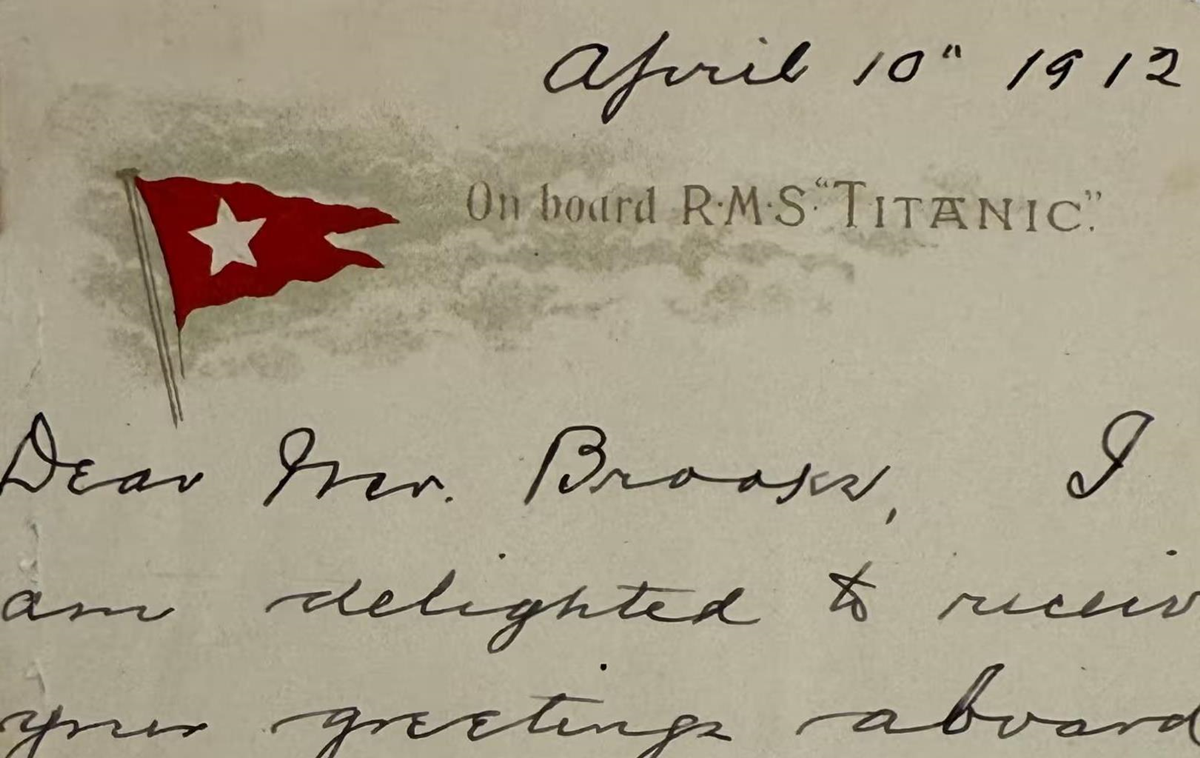 April 10" 1912
On board R·M·S· "TITANIC."
Dear Mr. Brooks, I
am delighted to receiv
your greetings aboard